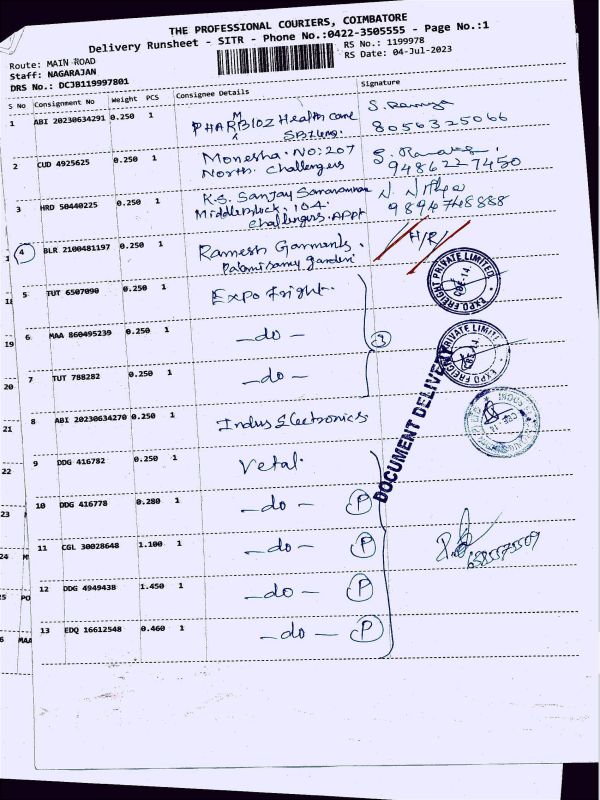 THE PROFESSIONAL COURIERS, COIMBATORE
Delivery Runsheet - SITR - Phone No.:0422-3505555 - Page No.:1
Route: MAIN ROAD
RS No.: 1199978
Staff: NAGARAJAN
RS Date: 04-Jul-2023
DRS No.: DCJB119997801
S No Consignment No Weight PCS Consignee Details Signature
1 ABI 20230634291 0.250 1 PHARMBIOZ Health care
8056325066
2 CUD 4925625 0.250 1 Monesha. No: 207
North Challengers
9486227450
3 HRD 50440225 0.250 1 K.S. Sanjay
Middle block. 104
Challengers. Appt
9894748888
4 BLR 2100481197 0.250 1 Ramesh Garments.
Palanisamy garden
H/R
5 TUT 6507090 0.250 1 Expo fright.
EXPO FREIGHT PRIVATE LIMITED
CBE-14
6 MAA 860495239 0.250 1 -do-
3
7 TUT 788282 0.250 1 -do-
DOCUMENT DELIVERY
8 ABI 20230634270 0.250 1 Indus Electronics
9 DDG 416782 0.250 1 Vetal.
10 DDG 416778 0.280 1 -do- P
11 CGL 30028648 1.100 1 -do- P
6385575509
12 DDG 4949438 1.450 1 -do- P
13 EDQ 16612548 0.460 1 -do- P
19
20
21
22
23
24
PO
MAA